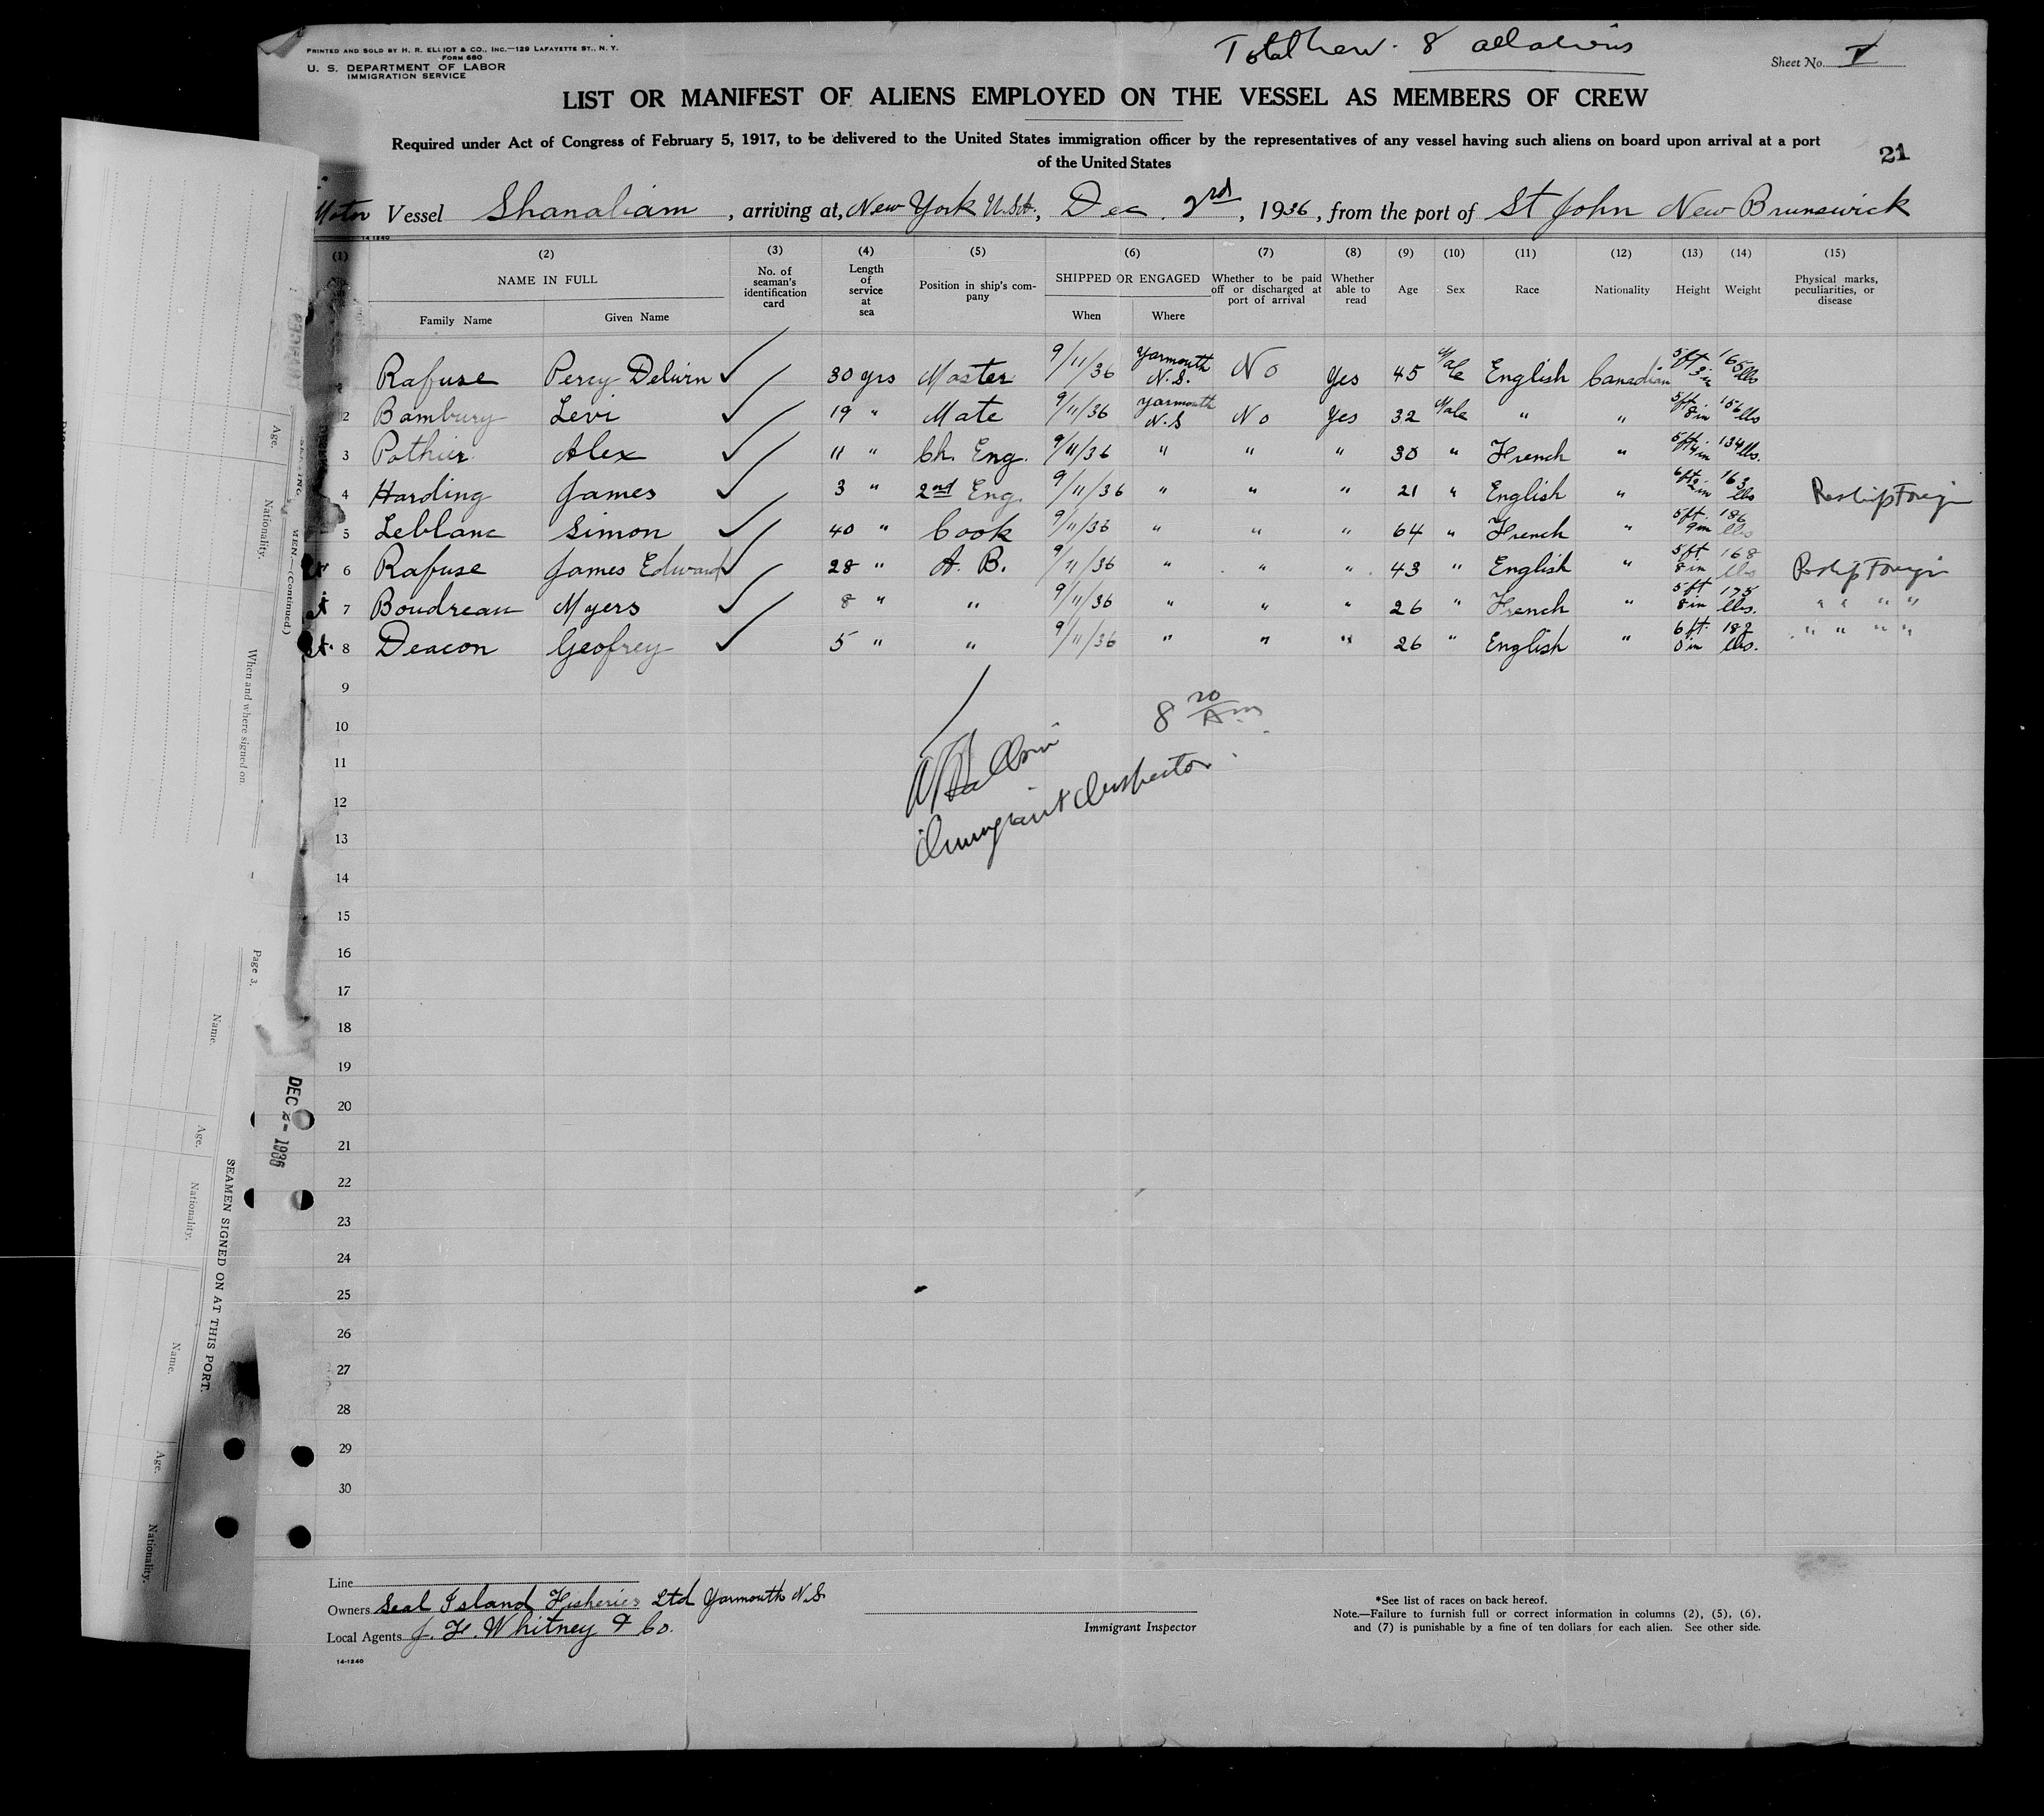 PRINTED AND SOLD BY H. R. ELLIOT & CO., INC.—129 LAFAYETTE ST., N. Y.
FORM 680
U. S. DEPARTMENT OF LABOR
IMMIGRATION SERVICE
Total Crew - 8 all aliens
Sheet No. I
LIST OR MANIFEST OF ALIENS EMPLOYED ON THE VESSEL AS MEMBERS OF CREW
Required under Act of Congress of February 5, 1917, to be delivered to the United States immigration officer by the representatives of any vessel having such aliens on board upon arrival at a port
of the United States
21
Motor Vessel Shanaliam, arriving at, New York U.S.A., Dec. 2rd, 1936, from the port of St John New Brunswick
14-1240
(1) (2) (3) (4) (5) (6) (7) (8) (9) (10) (11) (12) (13) (14) (15)
NAME IN FULL
Family Name Given Name
No. of seaman's identification card
Length of service at sea
Position in ship's company
SHIPPED OR ENGAGED
When Where
Whether to be paid off or discharged at port of arrival
Whether able to read
Age Sex Race Nationality Height Weight
Physical marks, peculiarities, or disease
Rafuse Percy 30 yrs Master 9/11/36 Yarmouth N.S. No Yes 45 Male English Canadian 5ft 3in 165 lbs
2 Bambury Levi 19 " Mate 9/11/36 Yarmouth N.S No Yes 32 Male " " 5ft 8in 156 lbs
3 Pothier Alex 11 " Ch. Eng. 9/11/36 " " " 30 " French " 5ft 134 lbs.
4 Harding James 3 " 2nd Eng. 9/11/36 " " " 21 " English " 6ft 2in 163 lbs Reship Foreign
5 Leblanc Simon 40 " Cook 9/11/36 " " " 64 " French " 5ft 9in 186 lbs
6 Rafuse James Edward 28 " A. B. 9/11/36 " " " 43 " English " 5ft 8in 168 lbs Reship Foreign
7 Boudreau Myers 8 " " 9/11/36 " " " 26 " French " 5ft 8in 175 lbs. " " " "
8 Deacon Geofrey 5 " " 9/11/36 " " " 26 " English " 6ft. 0in 182 lbs. " " " "
9
10
8 20 Am
11
12
Immigrant Inspector
13
14
15
16
17
18
19
20
21
22
23
24
25
26
27
28
29
30
DEC 1936
MEN.—(Continued.)
Age.
Nationality.
When and where signed on.
Page 3.
SEAMEN SIGNED ON AT THIS PORT.
Name.
Age.
Nationality.
Name.
Age.
Nationality.
Line
Owners Seal Island Fisheries Ltd Yarmouth N.S.
Local Agents J. F. Whitney & Co.
14-1240
Immigrant Inspector
*See list of races on back hereof.
Note.—Failure to furnish full or correct information in columns (2), (5), (6),
and (7) is punishable by a fine of ten dollars for each alien. See other side.